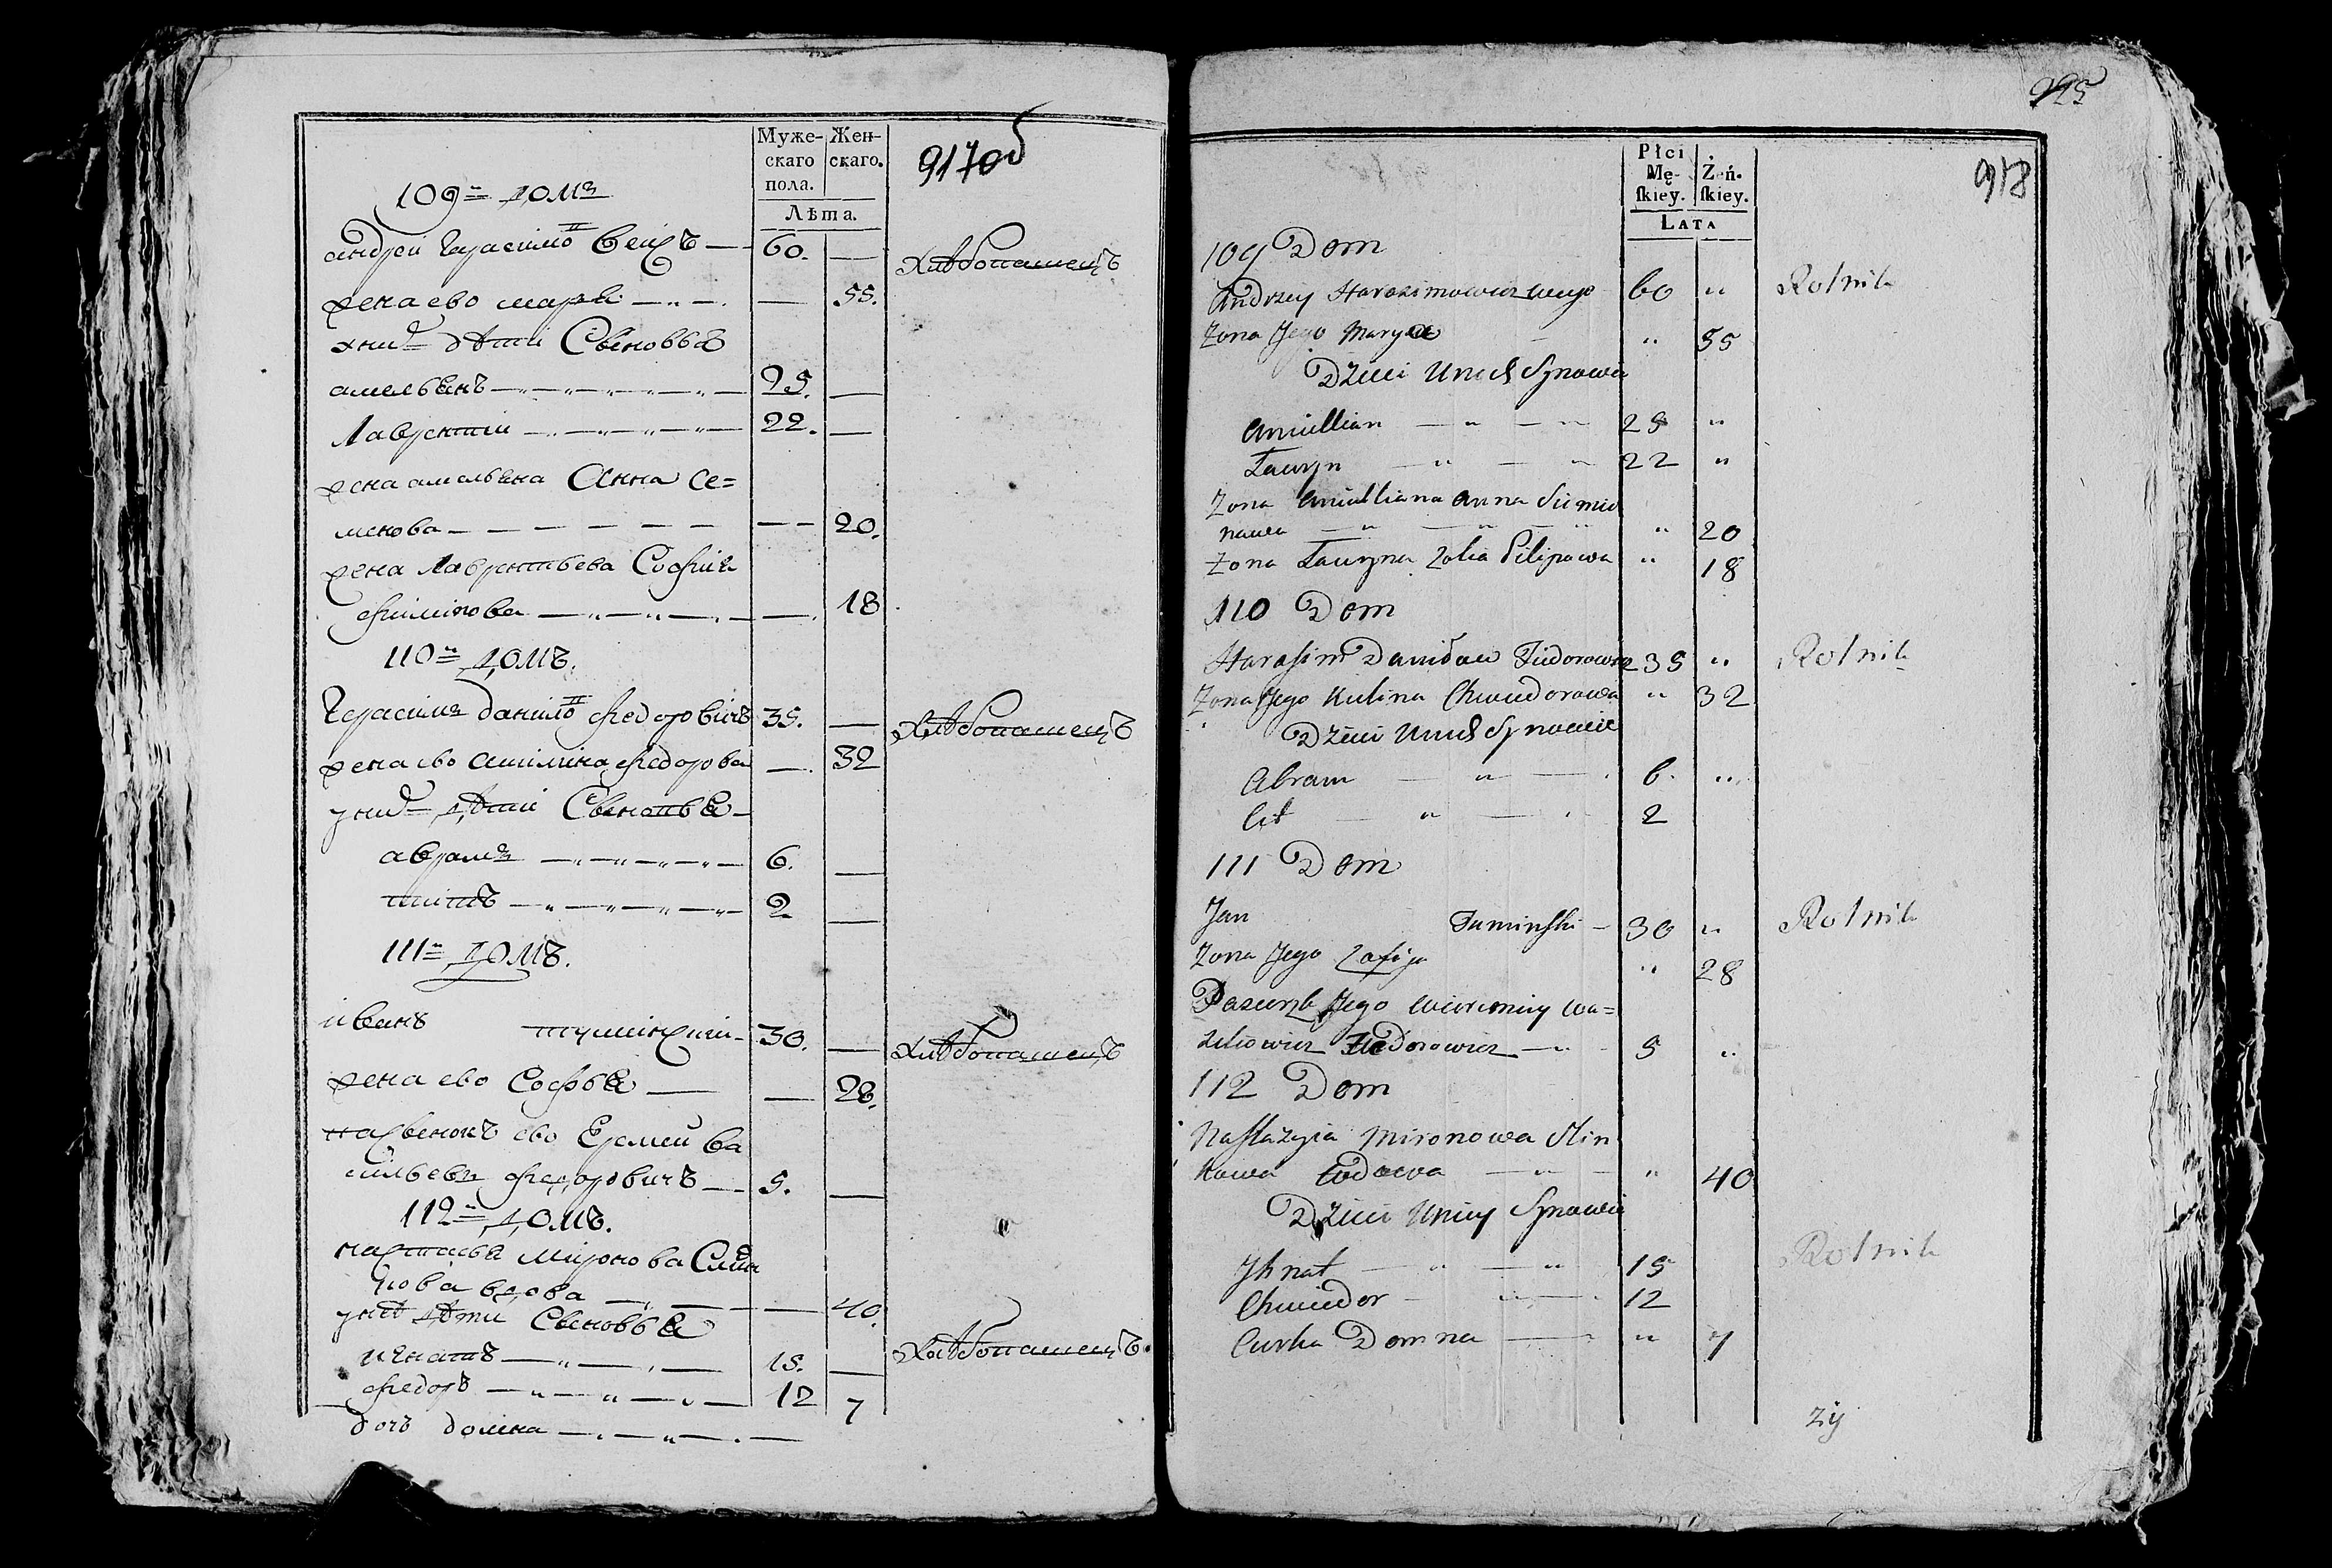 Муже-
скаго
пола.
Жен-
скаго.
Лѣта.
917об
109й домъ
андрей Герасимо̄ Вейсъ — 60. —
жена ево марья — — 55.
У нихъ дѣти Сыновья
амельянъ — 25. —
Лаврентий — 22. —
жена амельяна Анна Се=
менова — — 20.
жена Лаврентьева София
филипова — — 18
110й домъ.
Герасимъ данило̄ федоровичъ 35. —
жена ево Акилина федорова — 32
у нихъ дѣти Сыновья —
аврамъ — 6. —
титъ — 2 —
111й домъ.
иванъ туминский — 30. —
жена ево Софья — — 28.
пасынокъ ево Еремей Ва
сильевъ федоровичъ — 5. —
112й домъ.
настасья миронова
вдова — — 40.
у нее дѣти Сыновья
игнатъ — 15. —
федоръ — 12
дочь домна — 7
хлѣбопашецъ
хлѣбопашецъ
хлѣбопашецъ
хлѣбопашецъ.
295
918
Płci
Mę-
ſkiey.
Żeń-
ſkiey.
LATA
109 Dom
Andrzey Harasimowicz Weys 60 " Rolnik
Zona Jego Marya " 55
Dzieci Unich Synowie
Amiellian — " — " 25 "
Ławryn — " — " 22 "
Zona Amielliana Anna Siemio
nawa — " — " — " " 20
Zona Ławryna Zofia Pilipowa " 18
110 Dom
Harasim Daniłow Fiedorowicz 35 " Rolnik
Zona Jego Kulina Chwiedorowa " 32
Dzieci Unich Synowie
Abram — " — 6. "
Cit — " — 2
111 Dom
Jan Tuminski — 30 " Rolnik
Zona Jego Zofija " 28
Pasierzb Jego Wieremiey Wa=
zilewicz Fiedorowicz — " 5 "
112 Dom
Nastazyia Mironowa Slin
kowa Wdowa — " — " 40
Dzieci Uniey Synowie
Jhnat — " — " 15 Rolnik
Chwiedor — " — 12
Curka Domna — " 7
zy